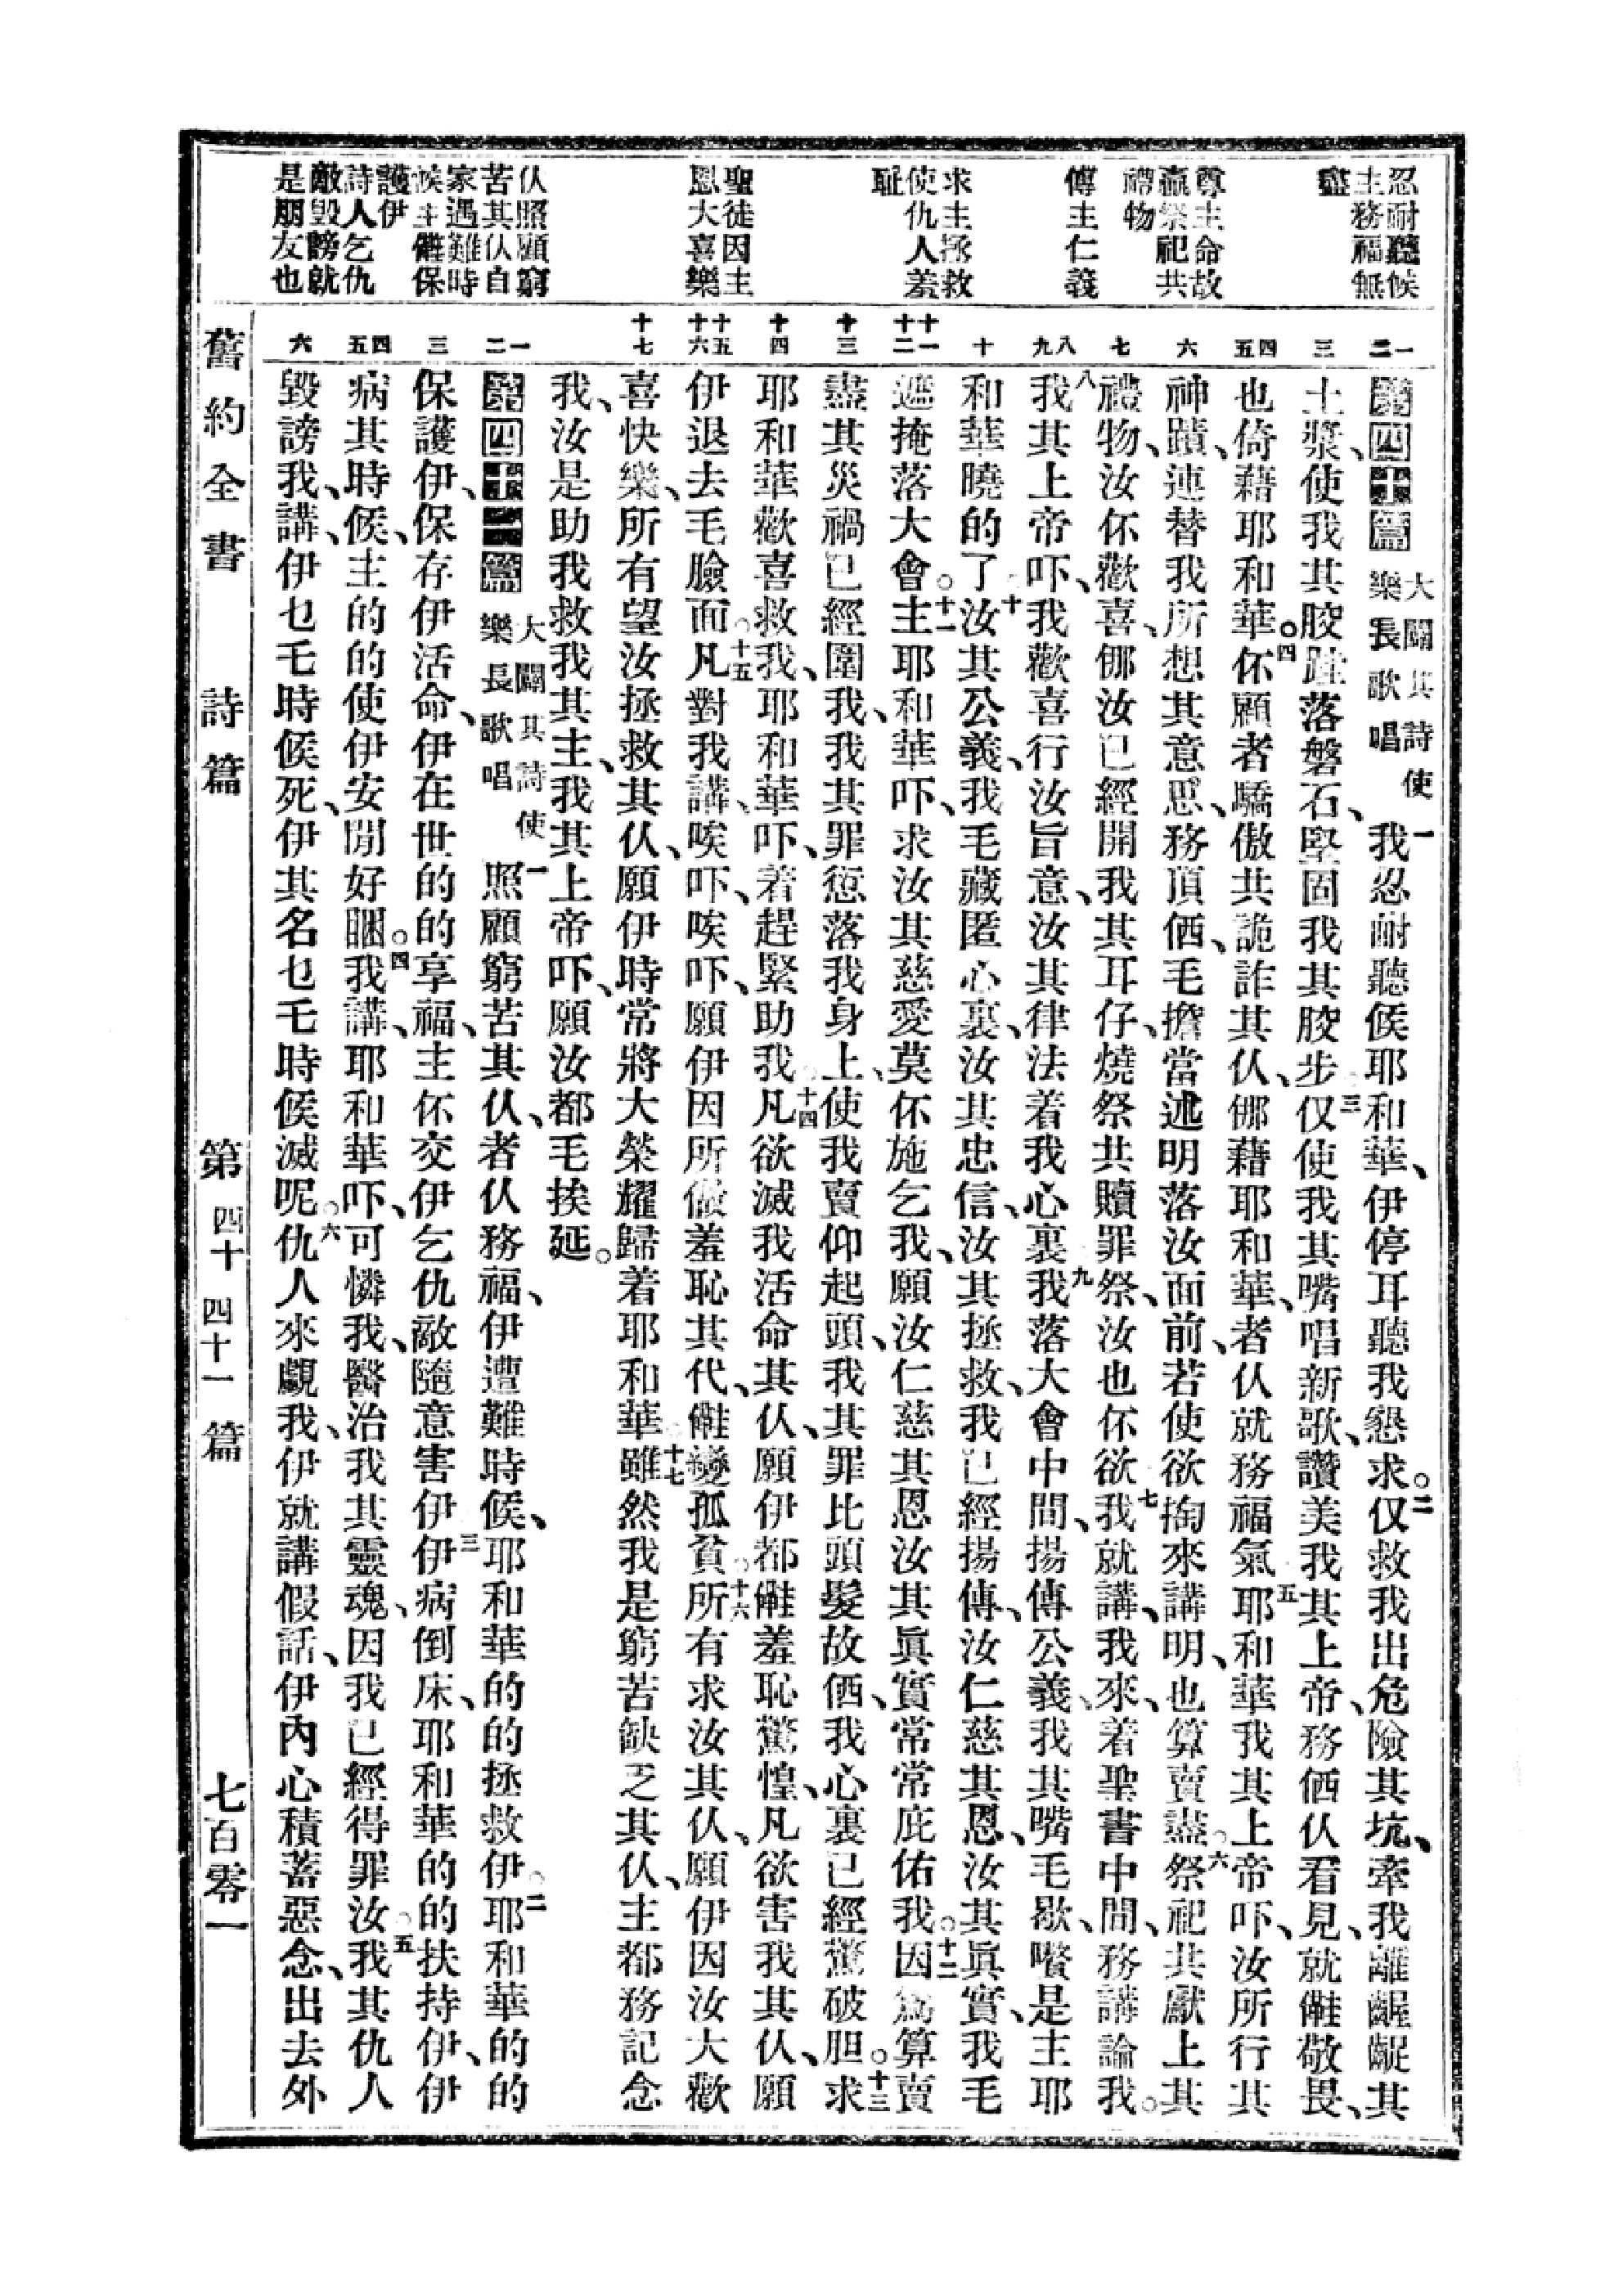 忍耐聽候
主務福無
盡
尊主命故
贏祭祀共
禮物
傳主仁義
求主拯救
使仇人羞
恥
聖徒因主
恩大喜樂
仈照顧窮
苦其仈自
家遇難時
候主㒤保
護伊
詩人乞仇
敵毀謗就
是朋友也
一 二 三 四 五 六 七 八 九 十 十一 十二 十三 十四 十五 十六 十七 一 二 三 四 五 六
第四十篇 大闢其詩使樂長歌唱 一我忍耐聽候耶和華、伊停耳聽我懇求。二仅救我出危險其坑、牽我離齷齪其
土漿、使我其骹跕落磐石、堅固我其骹步。三仅使我其嘴唱新歌、讚美我其上帝、務価仈看見、就㒤敬畏、
也倚藉耶和華。四伓顧者驕傲共詭詐其仈、㑚藉耶和華、者仈就務福氣。五耶和華我其上帝吓、汝所行其
神蹟、連替我所想其意思、務頂価、毛擔當述明落汝面前、若使欲掏來講明、也算賣盡。六祭祀共獻上其
禮物、汝伓歡喜、㑚汝已經開我其耳仔、燒祭共贖罪祭、汝也伓欲。七我就講、我來、着聖書中間、務講論我。
八我其上帝吓、我歡喜行汝旨意、汝其律法着我心裏。九我落大會中間、揚傳公義、我其嘴毛歇、嚽是主耶
和華曉的了。十汝其公義、我毛藏匿心裏、汝其忠信、汝其拯救、我已經揚傳、汝仁慈其恩、汝其眞實、我毛
遮掩落大會。十一主耶和華吓、求汝其慈愛莫伓施乞我、願汝仁慈其恩汝其眞實常常庇佑我。十二因萬算賣
盡其災禍已經圍我、我其罪愆落我身上、使我賣仰起頭、我其罪比頭髮故価、我心裏已經驚破胆。十三求
耶和華歡喜救我、耶和華吓、着趕緊助我。十四凡欲滅我活命其仈、願伊都㒤羞恥驚惶、凡欲害我其仈、願
伊退去毛臉面。十五凡對我講、唉吓、唉吓、願伊因所做羞恥其代、㒤變孤貧。十六所有求汝其仈、願伊因汝大歡
喜快樂、所有望汝拯救其仈、願伊時常將大榮耀歸着耶和華。十七雖然我是窮苦缺乏其仈、主都務記念
我、汝是助我救我其主、我其上帝吓、願汝都毛挨延。
第四十一篇 大闢其詩使樂長歌唱 一照顧窮苦其仈、者仈務福、伊遭難時候、耶和華的的拯救伊。二耶和華的的
保護伊、保存伊活命、伊在世的的享福、主伓交伊乞仇敵隨意害伊。三伊病倒床、耶和華的的扶持伊、伊
病其時候、主的的使伊安閒好睏。四我講、耶和華吓、可憐我、醫治我其靈魂、因我已經得罪汝。五我其仇人
毀謗我、講、伊乜乇時候死、伊其名乜乇時候滅呢。六仇人來覷我、伊就講假話、伊內心積蓄惡念、出去外
舊約全書 詩篇 第四十 四十一篇 七百零一